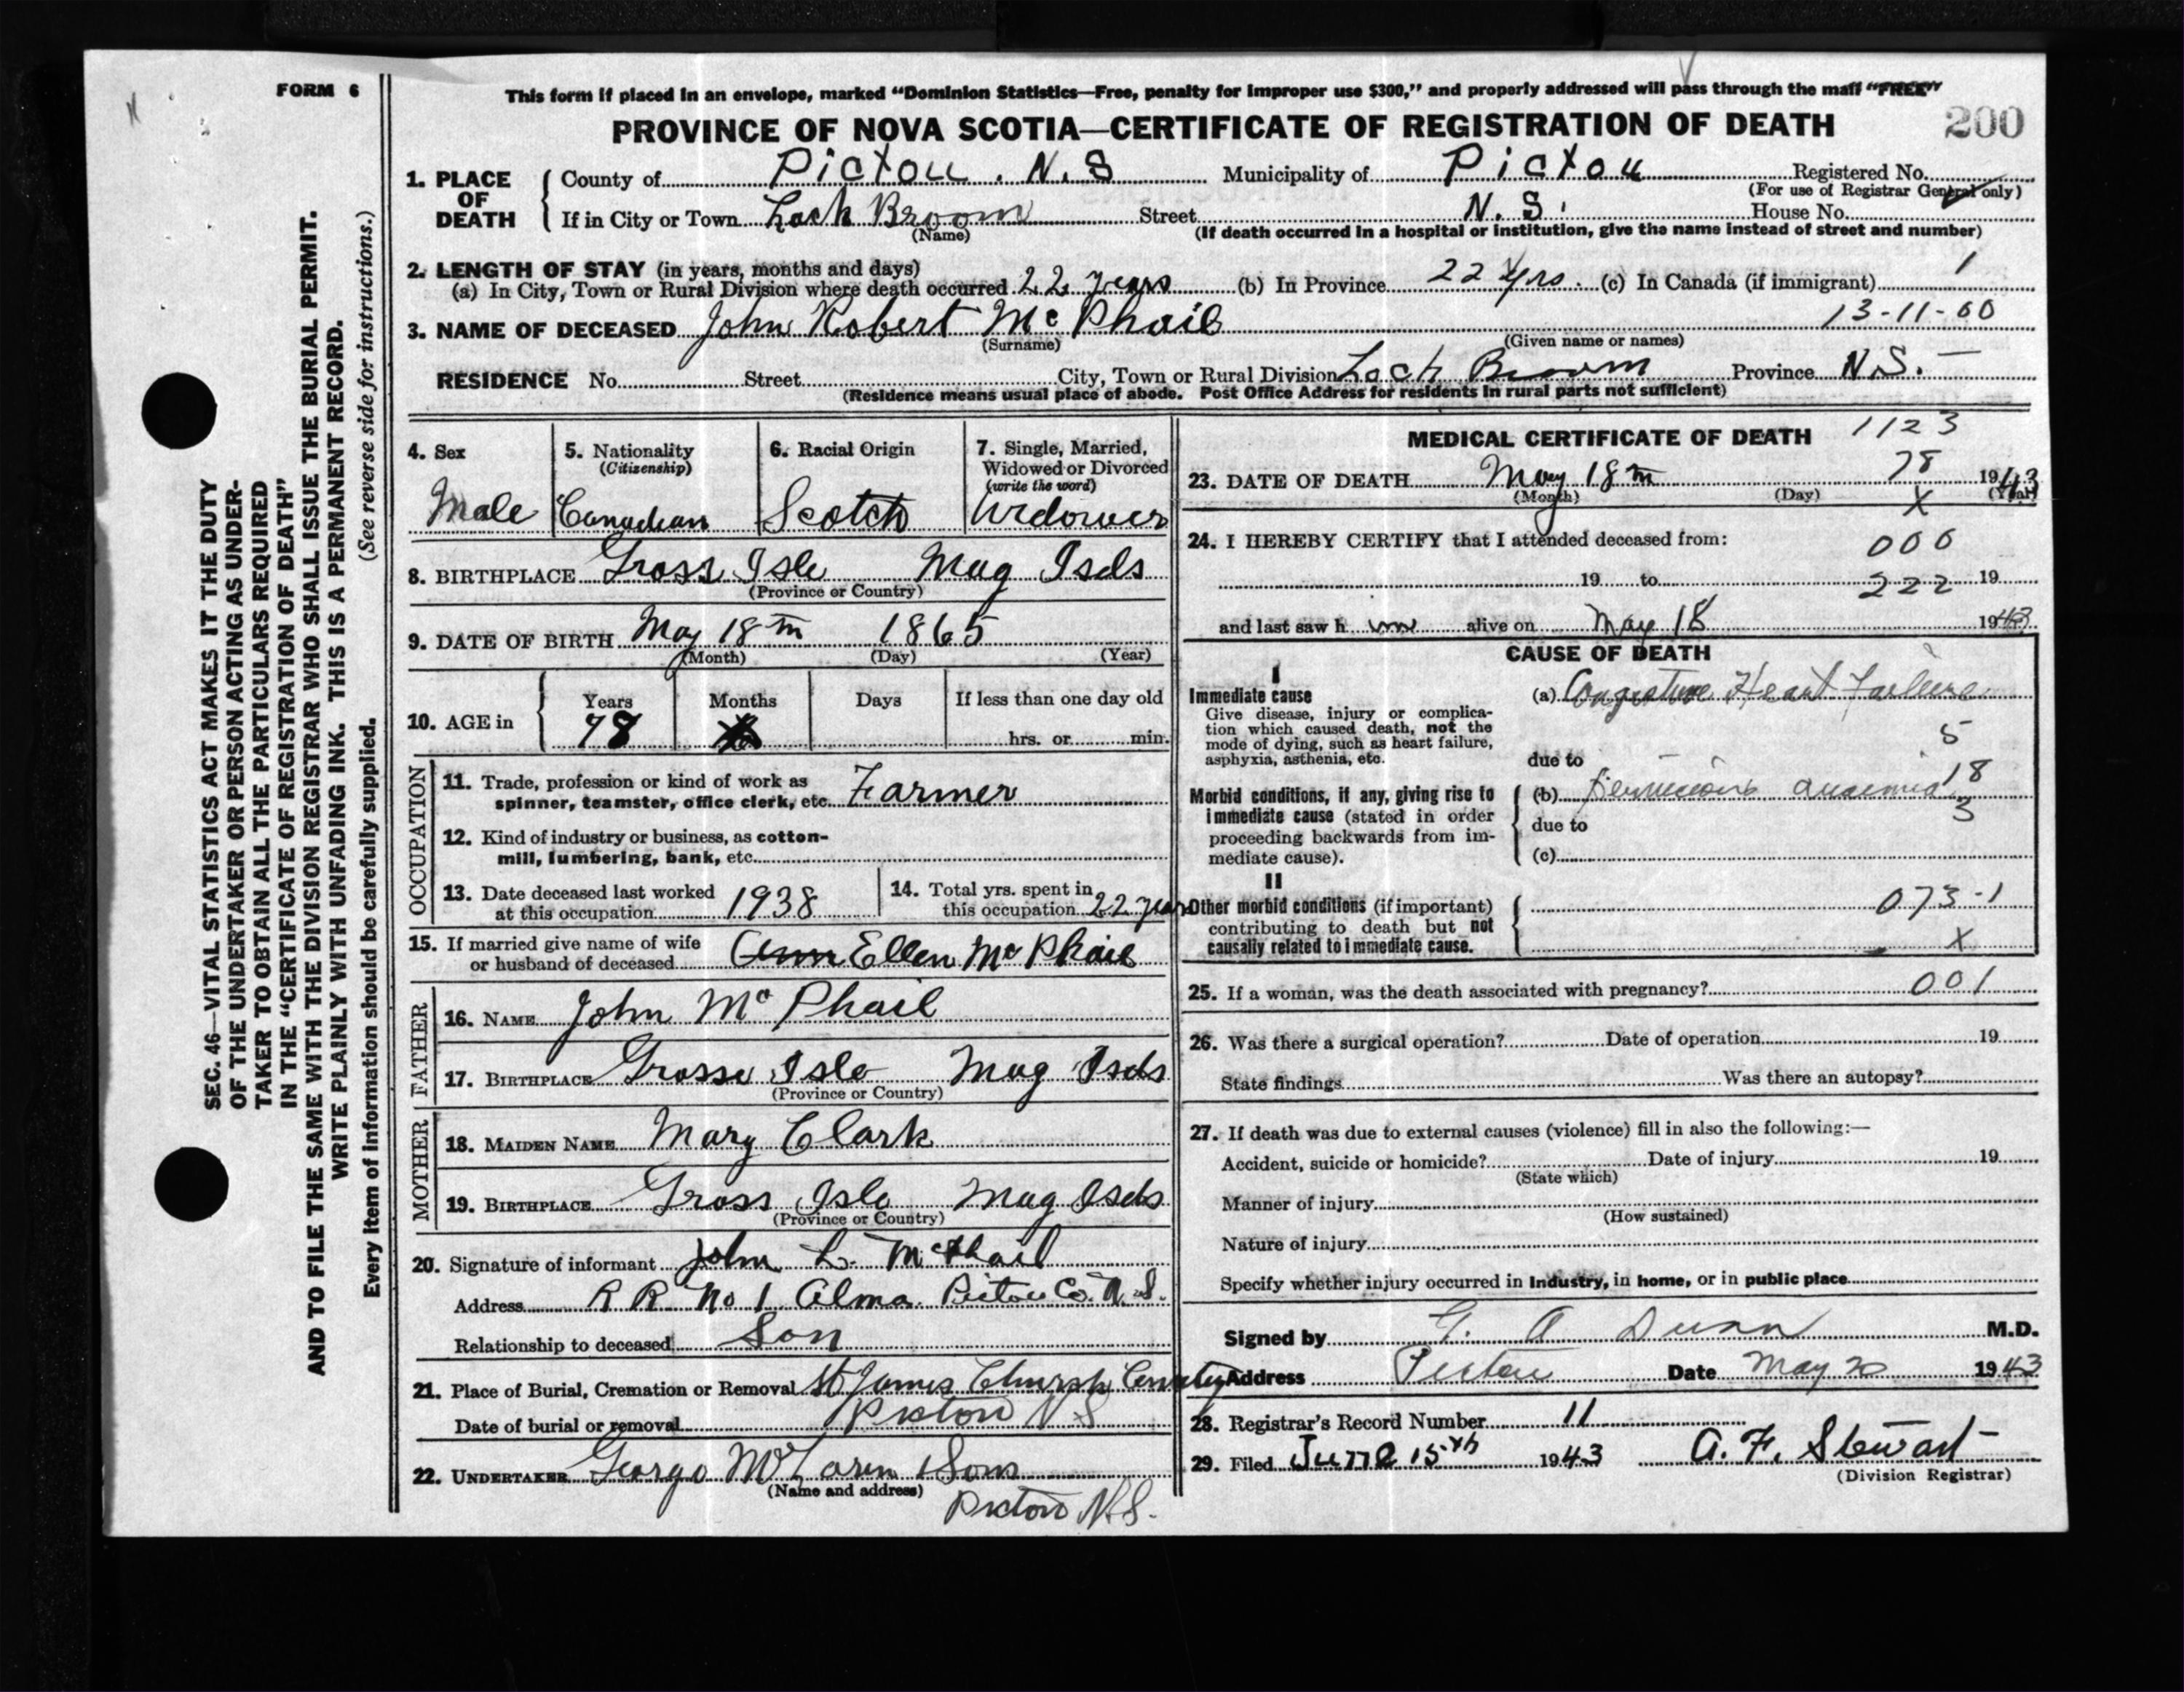 FORM 6
This form if placed in an envelope, marked "Dominion Statistics—Free, penalty for improper use $300," and properly addressed will pass through the mail "FREE"
PROVINCE OF NOVA SCOTIA—CERTIFICATE OF REGISTRATION OF DEATH 200
SEC. 46—VITAL STATISTICS ACT MAKES IT THE DUTY
OF THE UNDERTAKER OR PERSON ACTING AS UNDER-
TAKER TO OBTAIN ALL THE PARTICULARS REQUIRED
IN THE "CERTIFICATE OF REGISTRATION OF DEATH"
AND TO FILE THE SAME WITH THE DIVISION REGISTRAR WHO SHALL ISSUE THE BURIAL PERMIT.
WRITE PLAINLY WITH UNFADING INK. THIS IS A PERMANENT RECORD.
Every item of information should be carefully supplied. (See reverse side for instructions.)
1. PLACE OF DEATH
County of Pictou. N.S Municipality of Pictou Registered No.
(For use of Registrar General only)
If in City or Town Loch Broom Street N.S. House No.
(Name) (If death occurred in a hospital or institution, give the name instead of street and number)
2. LENGTH OF STAY (in years, months and days)
(a) In City, Town or Rural Division where death occurred 22 years (b) In Province 22 yrs. (c) In Canada (if immigrant) 1
3. NAME OF DECEASED John Robert McPhail 13-11-60
(Surname) (Given name or names)
RESIDENCE No. Street City, Town or Rural Division Loch Broom Province N.S.
(Residence means usual place of abode. Post Office Address for residents in rural parts not sufficient)
4. Sex
Male
5. Nationality
(Citizenship)
Canadian
6. Racial Origin
Scotch
7. Single, Married,
Widowed or Divorced
(write the word)
Widower
8. BIRTHPLACE Gross Isle Mag Isds
(Province or Country)
9. DATE OF BIRTH May 18th 1865
(Month) (Day) (Year)
10. AGE in
Years Months Days If less than one day old
78 hrs. or min.
OCCUPATION
11. Trade, profession or kind of work as
spinner, teamster, office clerk, etc. Farmer
12. Kind of industry or business, as cotton-
mill, lumbering, bank, etc.
13. Date deceased last worked
at this occupation 1938
14. Total yrs. spent in
this occupation 22 years
15. If married give name of wife
or husband of deceased Ellen McPhail
FATHER
16. NAME John McPhail
17. BIRTHPLACE Grosse Isle Mag Isds
(Province or Country)
MOTHER
18. MAIDEN NAME Mary Clark
19. BIRTHPLACE Gross Isle Mag Isds
(Province or Country)
20. Signature of informant John L. McPhail
Address R R No 1 Alma Pictou Co. N.S.
Relationship to deceased Son
21. Place of Burial, Cremation or Removal St James Church Cemetery
Date of burial or removal Pictou N S
22. UNDERTAKER George McLaren & Sons
(Name and address)
Pictou N.S.
MEDICAL CERTIFICATE OF DEATH 1123
78
23. DATE OF DEATH May 18th 1943
(Month) (Day) (Year)
X
24. I HEREBY CERTIFY that I attended deceased from: 000
19 to 222 19
and last saw him alive on May 18 1943
CAUSE OF DEATH
I
Immediate cause
Give disease, injury or complica-
tion which caused death, not the
mode of dying, such as heart failure,
asphyxia, asthenia, etc.
(a) Congestive Heart Failure
5
due to
Morbid conditions, if any, giving rise to
immediate cause (stated in order
proceeding backwards from im-
mediate cause).
(b) Pernicious anaemia 18
3
due to
(c)
II
Other morbid conditions (if important)
contributing to death but not
causally related to immediate cause.
073-1
X
25. If a woman, was the death associated with pregnancy? 001
26. Was there a surgical operation? Date of operation 19
State findings Was there an autopsy?
27. If death was due to external causes (violence) fill in also the following:—
Accident, suicide or homicide? Date of injury 19
(State which)
Manner of injury
(How sustained)
Nature of injury
Specify whether injury occurred in Industry, in home, or in public place
Signed by G. A Dunn M.D.
Address Pictou Date May 20 1943
28. Registrar's Record Number 11
29. Filed June 15th 1943 A. F. Stewart
(Division Registrar)